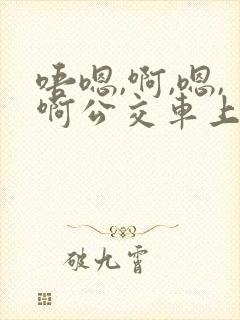 唔嗯,啊,嗯,
啊公交車上
破九霄